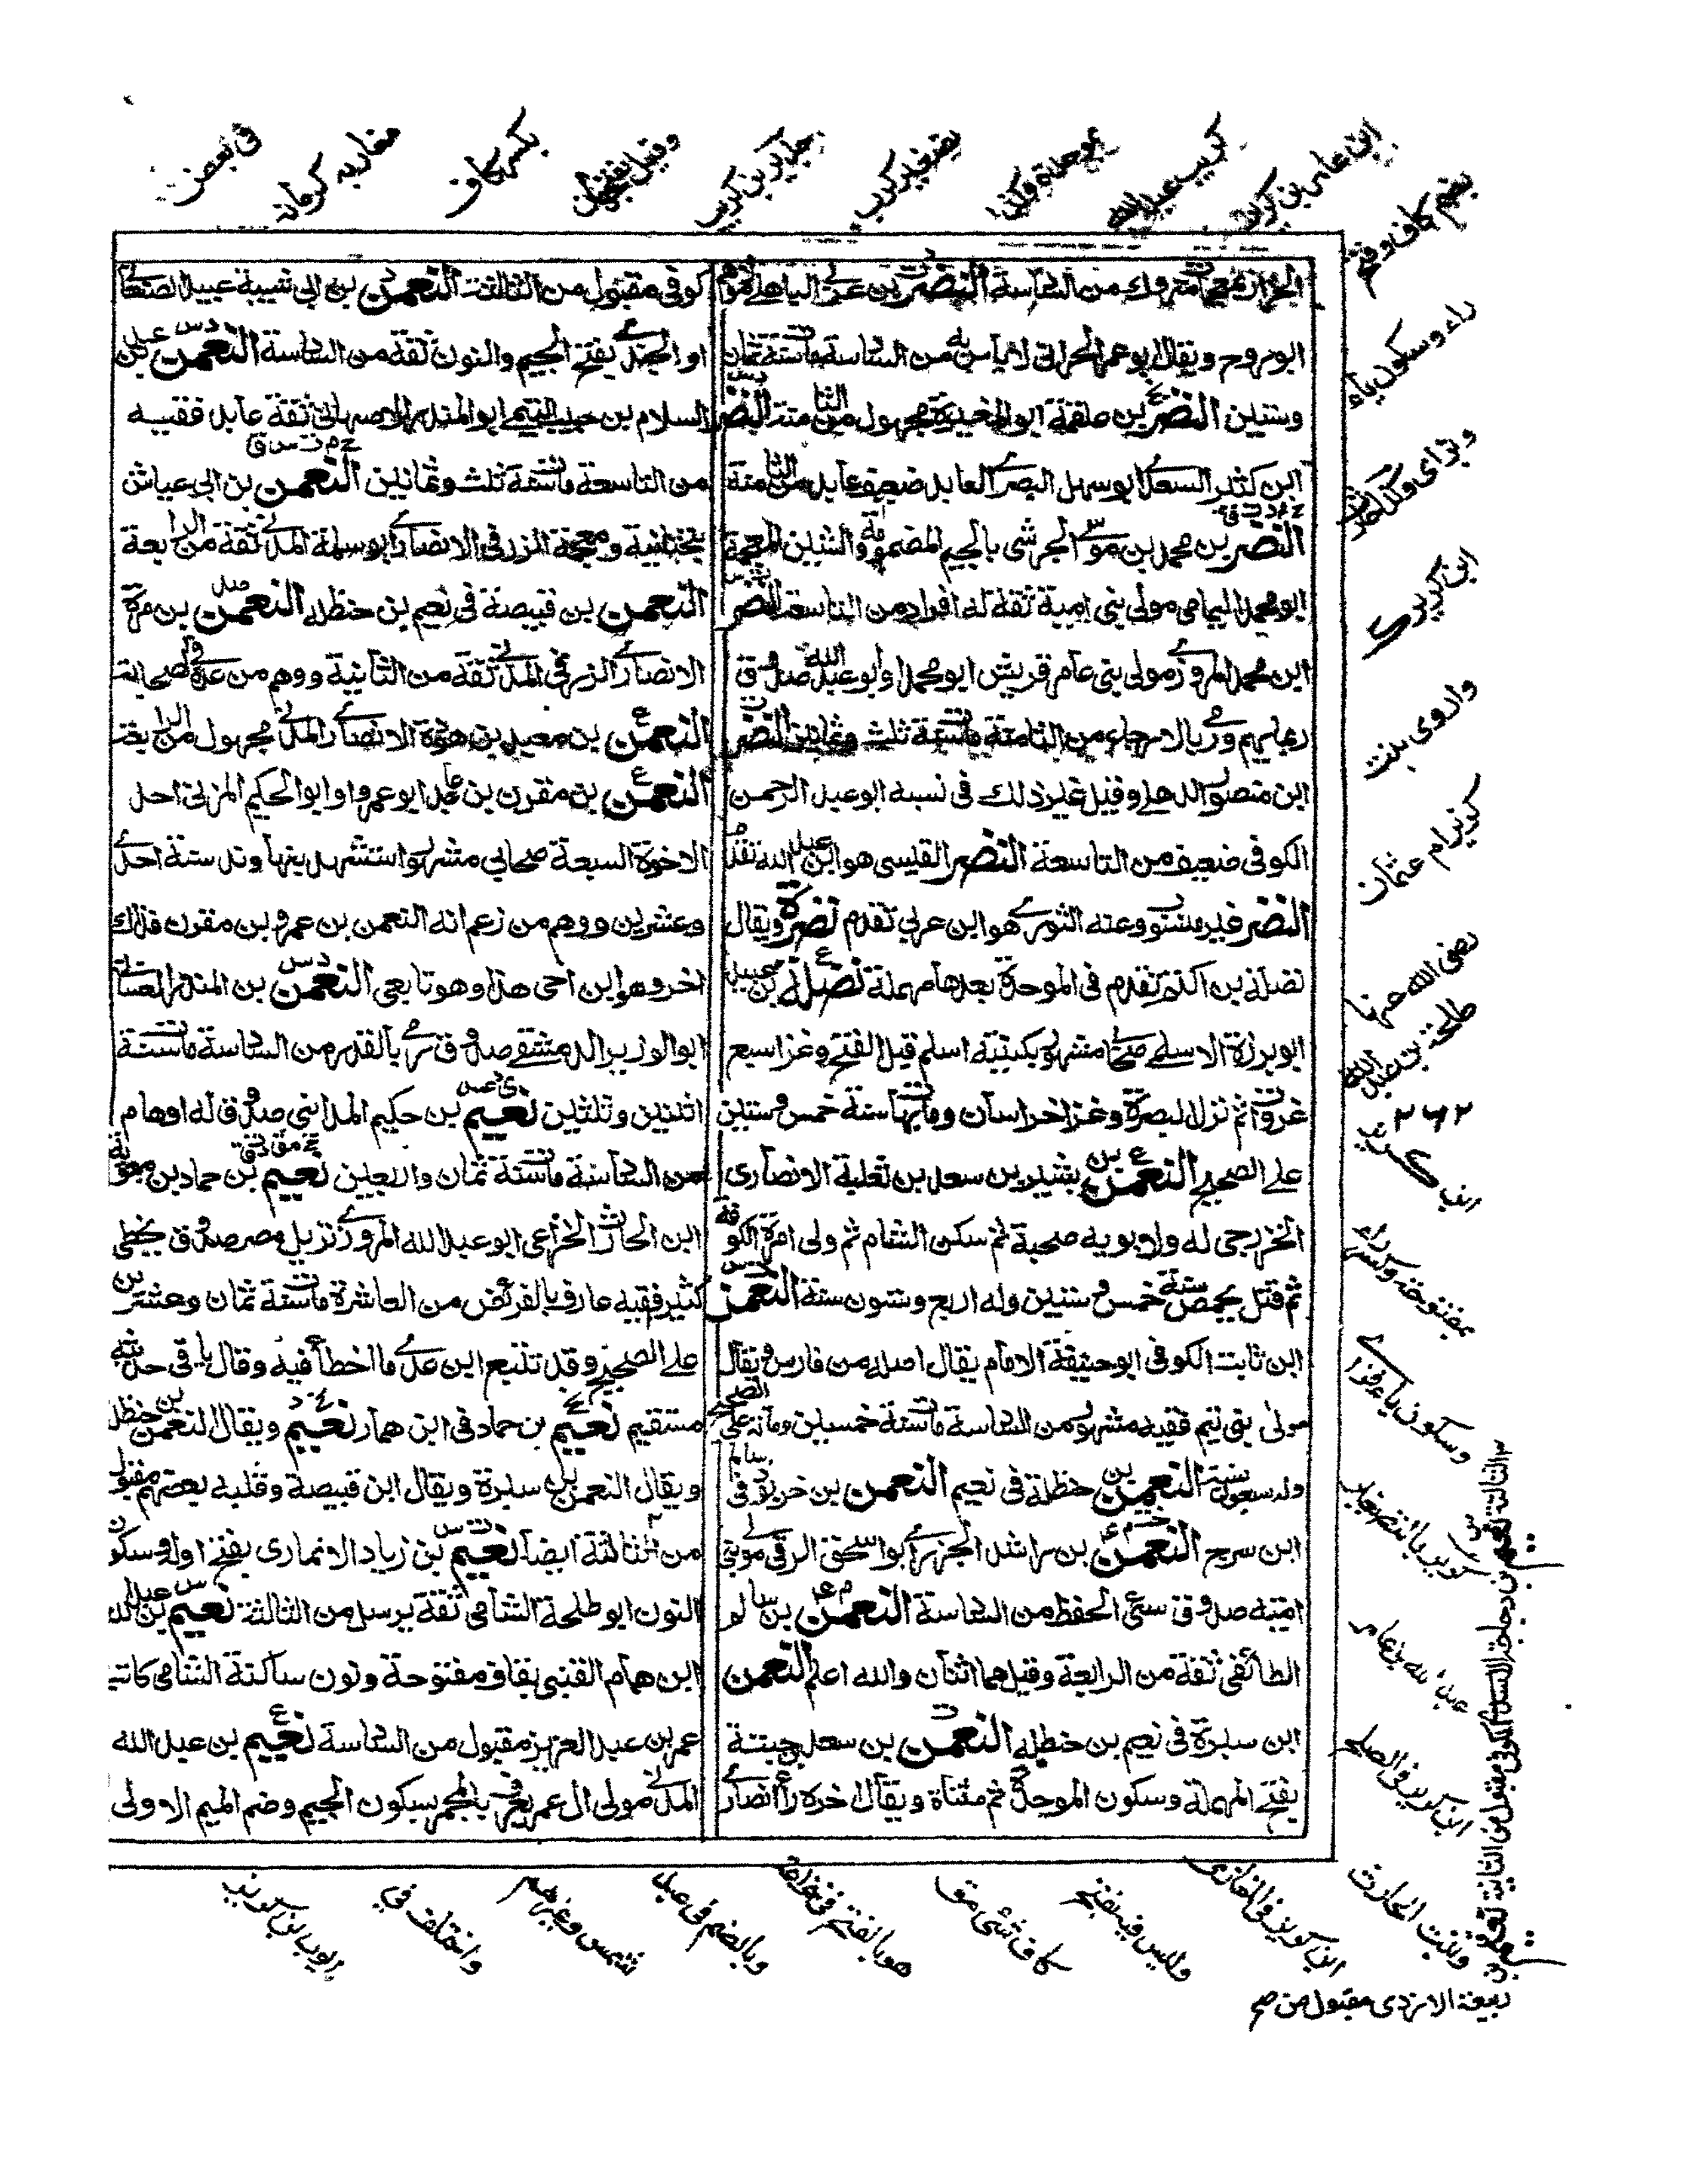 الخزاز بمعجمات متروك من السادسة النضر بن عربي الباهلي مولاهم
ابو روح ويقال ابو عمر الحراني لا بأس به من السادسة مات سنة ثمان
وستين النضر بن علقمة ابو المغيرة مجهول من الثامنة النضر
ابن كثير السعدي ابو سهل البصري العابد ضعيف عابد من الثامنة
النضر بن محمد بن موسى الجرشي بالجيم المضمومة والشين المعجمة
ابو محمد اليمامي مولى بني امية ثقة له افراد من التاسعة النضر
ابن محمد المروزي مولى بني عامر قريش ابو محمد او ابو عبد الله صدوق
ربما يهم ورمي بالارجاء من الثامنة مات سنة ثلث وثمانين النضر
ابن منصور الذهلي وقيل غير ذلك في نسبه ابو عبد الرحمن
الكوفي ضعيف من التاسعة النضر القيسي هو ابن عبد الله تقدم
النضر غير منسوب وعنه الثوري هو ابن عربي تقدم نضرة ويقال
نضلة بن اكثم تقدم في الموحدة بعدها مهملة نضلة بن عبيد
ابو برزة الاسلمي صحابي مشهور بكنيته اسلم قبل الفتح وغزا سبع
غزوات ثم نزل البصرة وغزا خراسان ومات بها سنة خمس وستين
على الصحيح النعمن بن بشير بن سعد بن ثعلبة الانصاري
الخزرجي له ولابويه صحبة ثم سكن الشام ثم ولي امرة الكوفة
ثم قتل بحمص سنة خمس وستين وله اربع وستون سنة النعمن
ابن ثابت الكوفي ابو حنيفة الامام يقال اصله من فارس ويقال
مولى بني تيم فقيه مشهور من السادسة مات سنة خمسين ومائة على الصحيح
وله سبعون سنة النعمن بن حنظلة في نعيم النعمن بن خربوذ في سالم
ابن سرج النعمن بن راشد الجزري ابو اسحق الرقي مولى بني
امية صدوق سيئ الحفظ من السادسة النعمن بن سالم
الطائفي ثقة من الرابعة وقيل هما اثنان والله اعلم النعمن
ابن سبرة في نعيم بن حنظلة النعمن بن سعد بن حبتة
بفتح المهملة وسكون الموحدة ثم مثناة ويقال اخره راء انصاري
كوفي مقبول من الثالثة النعمن بن ابي شيبة عبيد الصنعاني
او الجندي بفتح الجيم والنون ثقة من السادسة النعمن بن عبد
السلام بن حبيب التيمي ابو المنذر الاصبهاني ثقة عابد فقيه
من التاسعة مات سنة ثلث وثمانين النعمن بن ابي عياش
بتحتانية ومعجمة الزرقي الانصاري ابو سلمة المدني ثقة من الرابعة
النعمن بن قبيصة في نعيم بن حنظلة النعمن بن مرة
الانصاري الزرقي المدني ثقة من الثانية ووهم من عده في الصحابة
النعمن بن معبد بن هوذة الانصاري المدني مجهول من الرابعة
النعمن بن مقرن بن عائذ ابو عمرو او ابو الحكيم المزني احد
الاخوة السبعة صحابي مشهور استشهد بنهاوند سنة احدى
وعشرين ووهم من زعم انه النعمن بن عمرو بن مقرن فذلك
اخر وهو ابن اخي هذا وهو تابعي النعمن بن المنذر الغساني
ابو الوزير الدمشقي صدوق رمي بالقدر من السادسة مات سنة
اثنين وثلثين نعيم بن حكيم المدايني صدوق له اوهام
من السابعة مات سنة ثمان واربعين نعيم بن حماد بن معوية
ابن الحارث الخزاعي ابو عبد الله المروزي نزيل مصر صدوق يخطئ
كثير فقيه عارف بالفرائض من العاشرة مات سنة ثمان وعشرين
على الصحيح وقد تتبع ابن عدي ما اخطأ فيه وقال باقي حديثه
مستقيم نعيم بن حماد في ابن همار نعيم ويقال النعمن بن حنظلة
ويقال النعمن بن سبرة ويقال ابن قبيصة وقلبه بعضهم مقبول
من الثالثة ايضا نعيم بن زياد الانماري بفتح اوله وسكون
النون ابو طلحة الشامي ثقة يرسل من الثالثة نعيم بن عبد الله
ابن همام القيني بقاف مفتوحة ونون ساكنة الشامي كاتب
عمر بن عبد العزيز مقبول من السادسة نعيم بن عبد الله
المدني مولى ال عمر يعرف بالمجمر بسكون الجيم وضم الميم الاولى
بضم كاف وفتح
راء وسكون ياء
وبزاي
ابن كريز
واروى بنت
كريز ام عثمان
رضي الله عنهما
طلحة بن عبيد الله
ابن كريز
بمفتوحة وكسر راء
وسكون ياء فزاي
عبد الله بن عامر
وبنت الحارث
ابن كريز في المغازي
وليس فيه بفتح
كاف شئ
وبالضم في عبد
شمس وغيرهم
واختلف في
ايوب بن كريز
ربيعة الازدي مقبول من صح